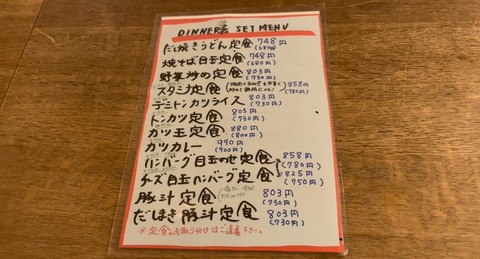 DINNER SET MENU
だし焼きうどん定食 748円
(680円)
焼そば目玉定食 748円
(680円)
野菜炒め定食 803円
(730円)
スタミナ定食 858円
(780円)
デミトンカツライス 803円
(730円)
トンカツ定食 803円
(730円)
カツ玉定食 880円
(800円)
カツカレー 990円
(900円)
ハンバーグ目玉のせ定食 858円
(780円)
チーズ目玉ハンバーグ定食 825円
(750円)
豚汁定食 803円
(730円)
だしまき豚汁定食 803円
(730円)
※定食のお取り分けはご遠慮下さい。